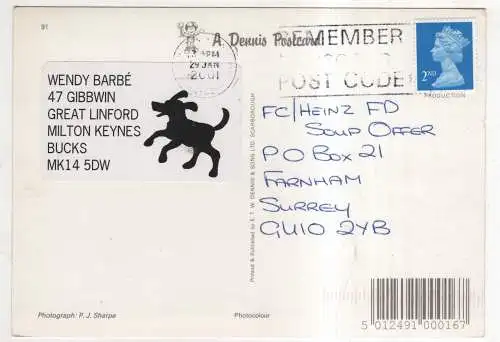 91
A Dennis Postcard
PM
29 JAN
2001
REMEMBER
POST CODE
2ND
PRODUCTION
WENDY BARBÉ
47 GIBBWIN
GREAT LINFORD
MILTON KEYNES
BUCKS
MK14 5DW
Printed & Published by E. T. W. DENNIS & SONS LTD. SCARBOROUGH
FC/HEINZ FD
SOUP OFFER
P O BOX 21
FARNHAM
SURREY
GU10 2YB
Photograph: P. J. Sharpe
Photocolour
5 012491 000167